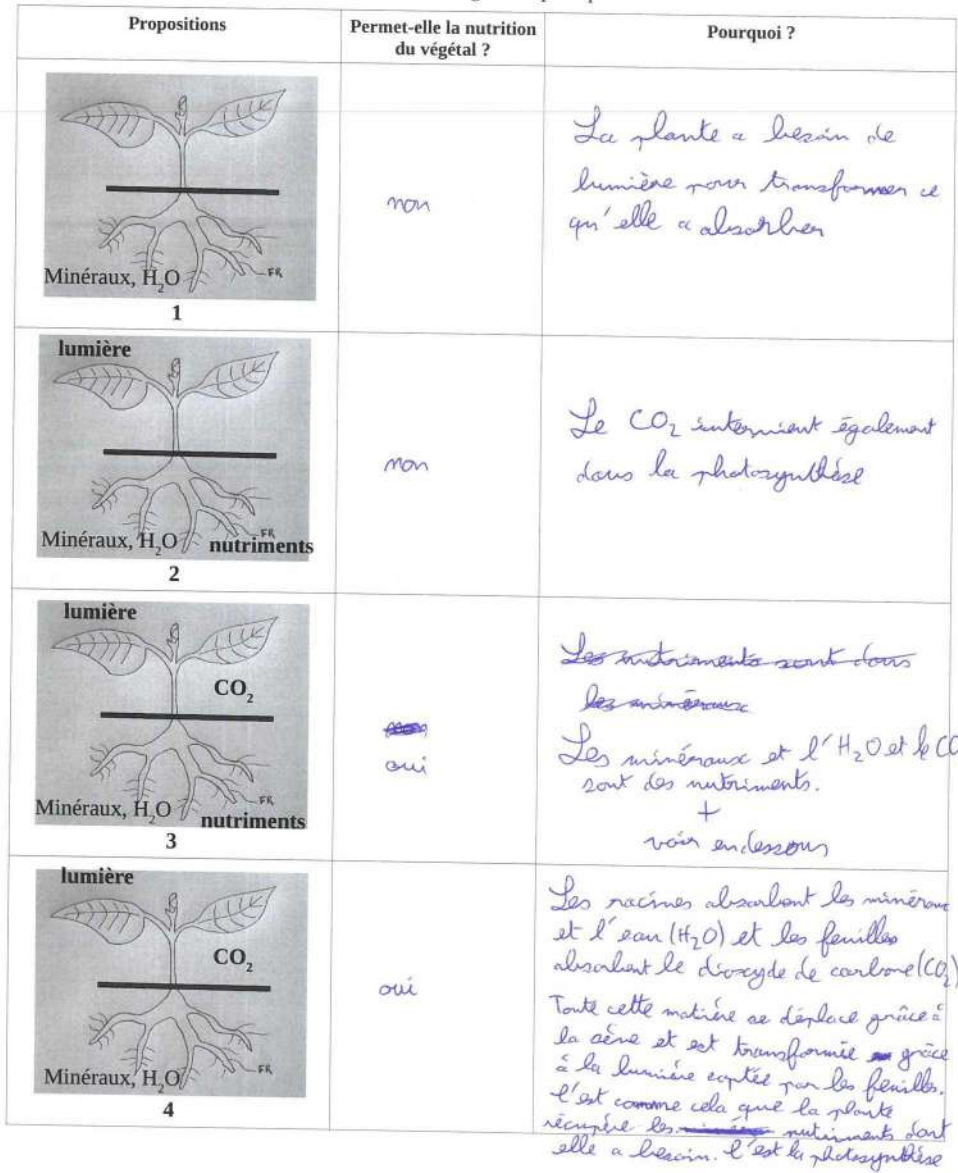 Propositions
Permet-elle la nutrition
du végétal ?
Pourquoi ?
Minéraux, H₂O
FR
1
non
La plante a besoin de
lumière pour transformer ce
qu'elle a absorber
lumière
Minéraux, H₂O
FR
nutriments
2
non
Le CO₂ intervient également
dans la photosynthèse
lumière
CO₂
Minéraux, H₂O
FR
nutriments
3
oui
Les nutriments sont dans
les minéraux
Les minéraux et l'H₂O et le CO
sont des nutriments.
+
voir endessous
lumière
CO₂
Minéraux, H₂O
FR
4
oui
Les racines absorbent les minéraux
et l'eau (H₂O) et les feuilles
absorbent le dioxyde de carbone (CO₂)
Toute cette matière se déplace grâce à
la sève et est transformée grâce
à la lumière captée par les feuilles.
C'est comme cela que la plante
récupère les nutriments dont
elle a besoin. C'est la photosynthèse